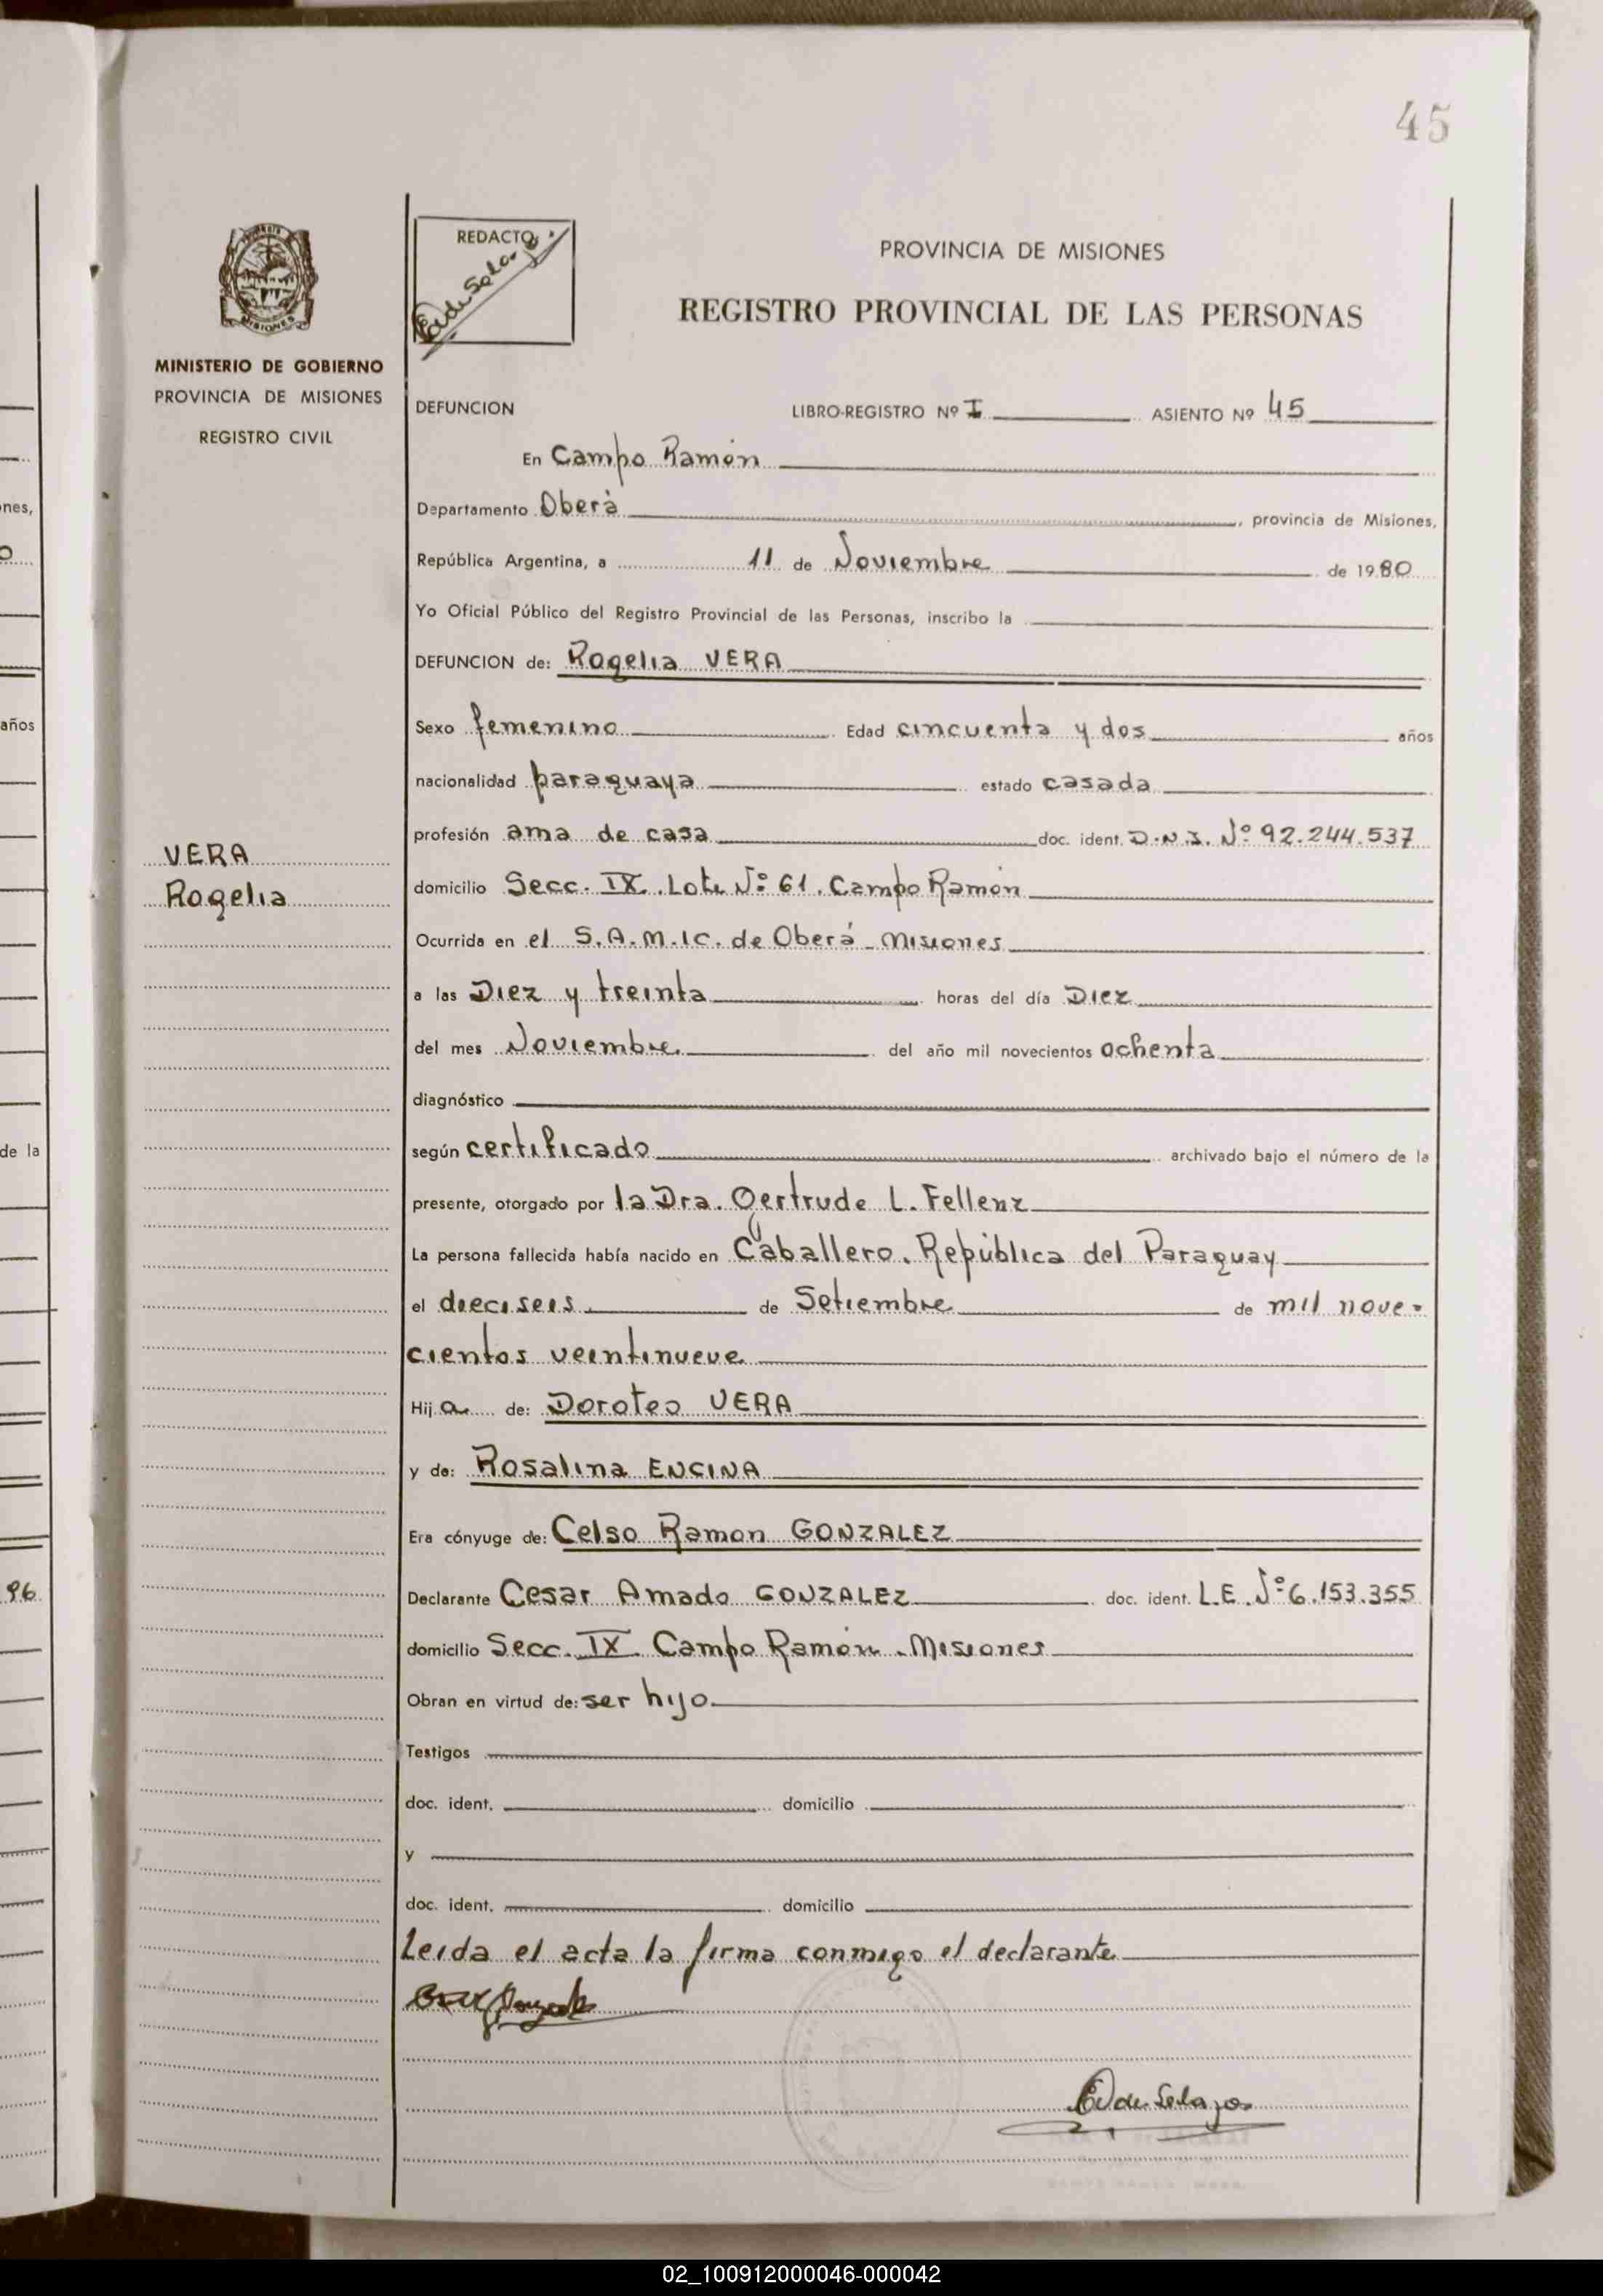 45
MISIONES
MINISTERIO DE GOBIERNO
PROVINCIA DE MISIONES
REGISTRO CIVIL
VERA
Rogelia
REDACTO
PROVINCIA DE MISIONES
REGISTRO PROVINCIAL DE LAS PERSONAS
DEFUNCION LIBRO-REGISTRO Nº I ASIENTO Nº 45
En Campo Ramón
Departamento Oberà, provincia de Misiones,
República Argentina, a 11 de Noviembre de 1980
Yo Oficial Público del Registro Provincial de las Personas, inscribo la
DEFUNCION de: Rogelia VERA
Sexo femenino Edad cincuenta y dos años
nacionalidad paraguaya estado casada
profesión ama de casa doc. ident. D.N.I. Nº 92.244.537
domicilio Secc. IX. Lote Nº 61. Campo Ramón
Ocurrida en el S.A.M.IC. de Oberá - Misiones
a las Diez y treinta horas del día Diez
del mes Noviembre. del año mil novecientos ochenta
diagnóstico
según certificado archivado bajo el número de la
presente, otorgado por la Dra. Gertrude L. Fellenz
La persona fallecida había nacido en Caballero. República del Paraguay
el dieciseis de Setiembre de mil nove-
cientos veintinueve
Hija de: Doroteo VERA
y de: Rosalina ENCINA
Era cónyuge de: Celso Ramon GONZALEZ
Declarante Cesar Amado GONZALEZ doc. ident. L.E. Nº 6.153.355
domicilio Secc. IX. Campo Ramón - Misiones
Obran en virtud de: ser hijo.
Testigos
doc. ident. domicilio
y
doc. ident. domicilio
Leida el acta la firma conmigo el declarante
nes,
años
de la
96
02_100912000046-000042